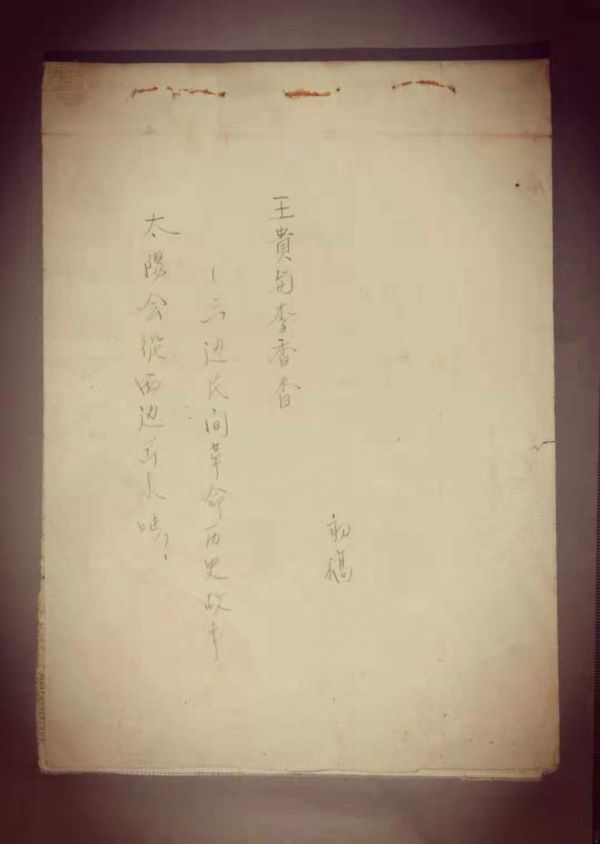 初稿
王貴与李香香
—三边民间革命历史故事
太陽会從西边出来吗?